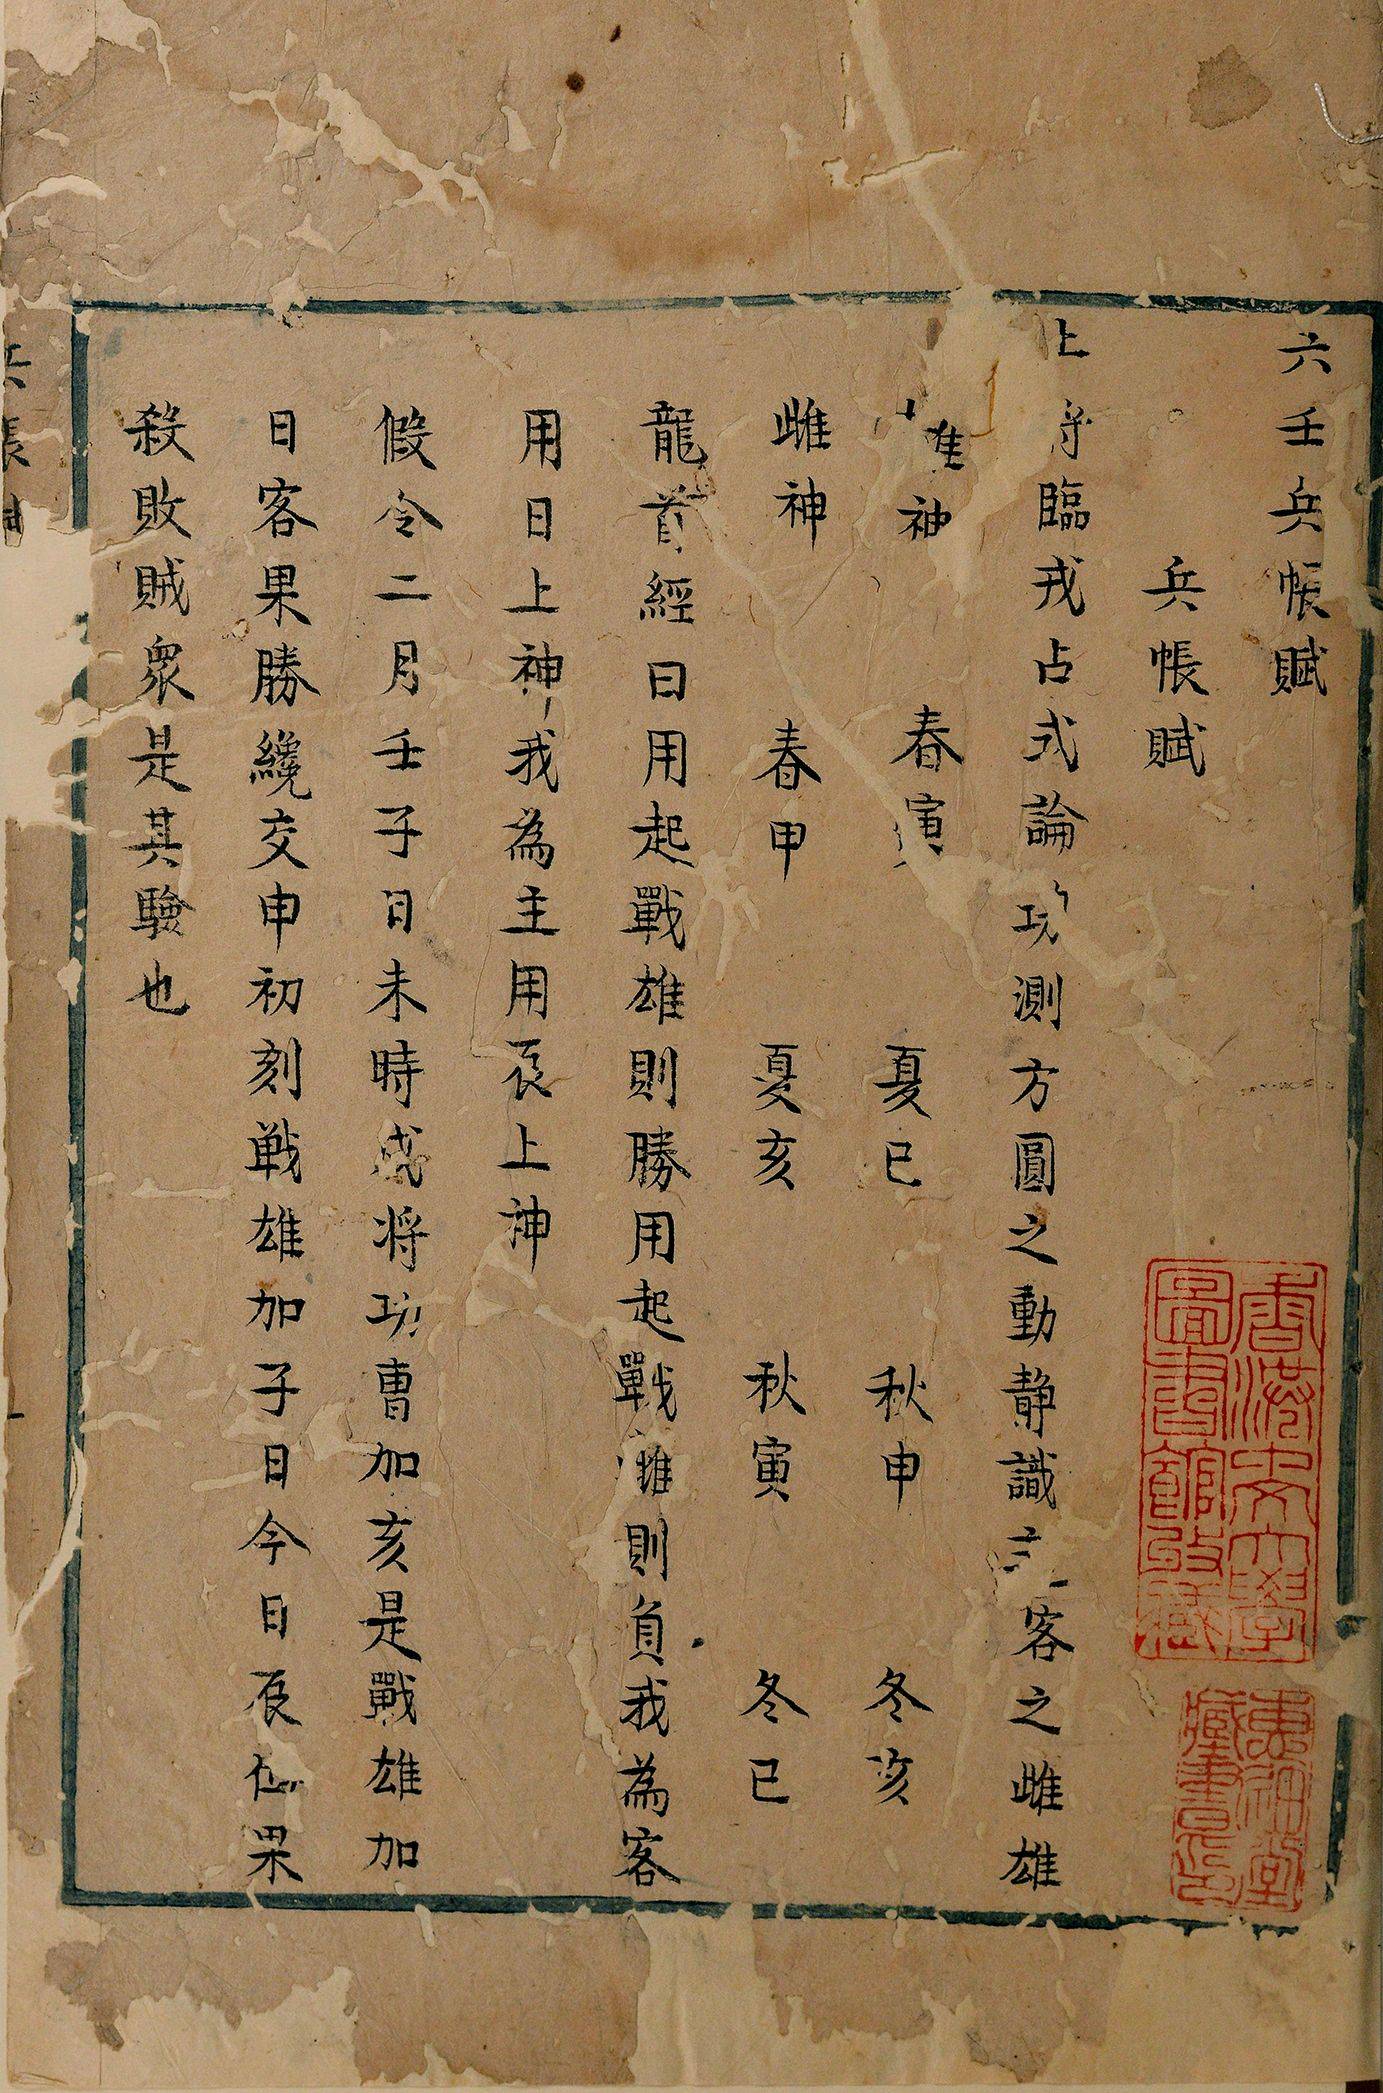 六壬兵帳賦
兵帳賦
上将臨戎占式論功測方圓之動静識主客之雌雄
雄神 春寅 夏巳 秋申 冬亥
雌神 春申 夏亥 秋寅 冬巳
龍首經曰用起戰雄則勝用起戰雌則負我為客
用日上神我為主用辰上神
假令二月壬子日未時戌将功曹加亥是戰雄加
日客果勝纔交申初刻戦雄加子日今日辰位果
殺敗賊衆是其驗也
香港中文大學
圖書館所藏
藏書印
兵帳賦
一